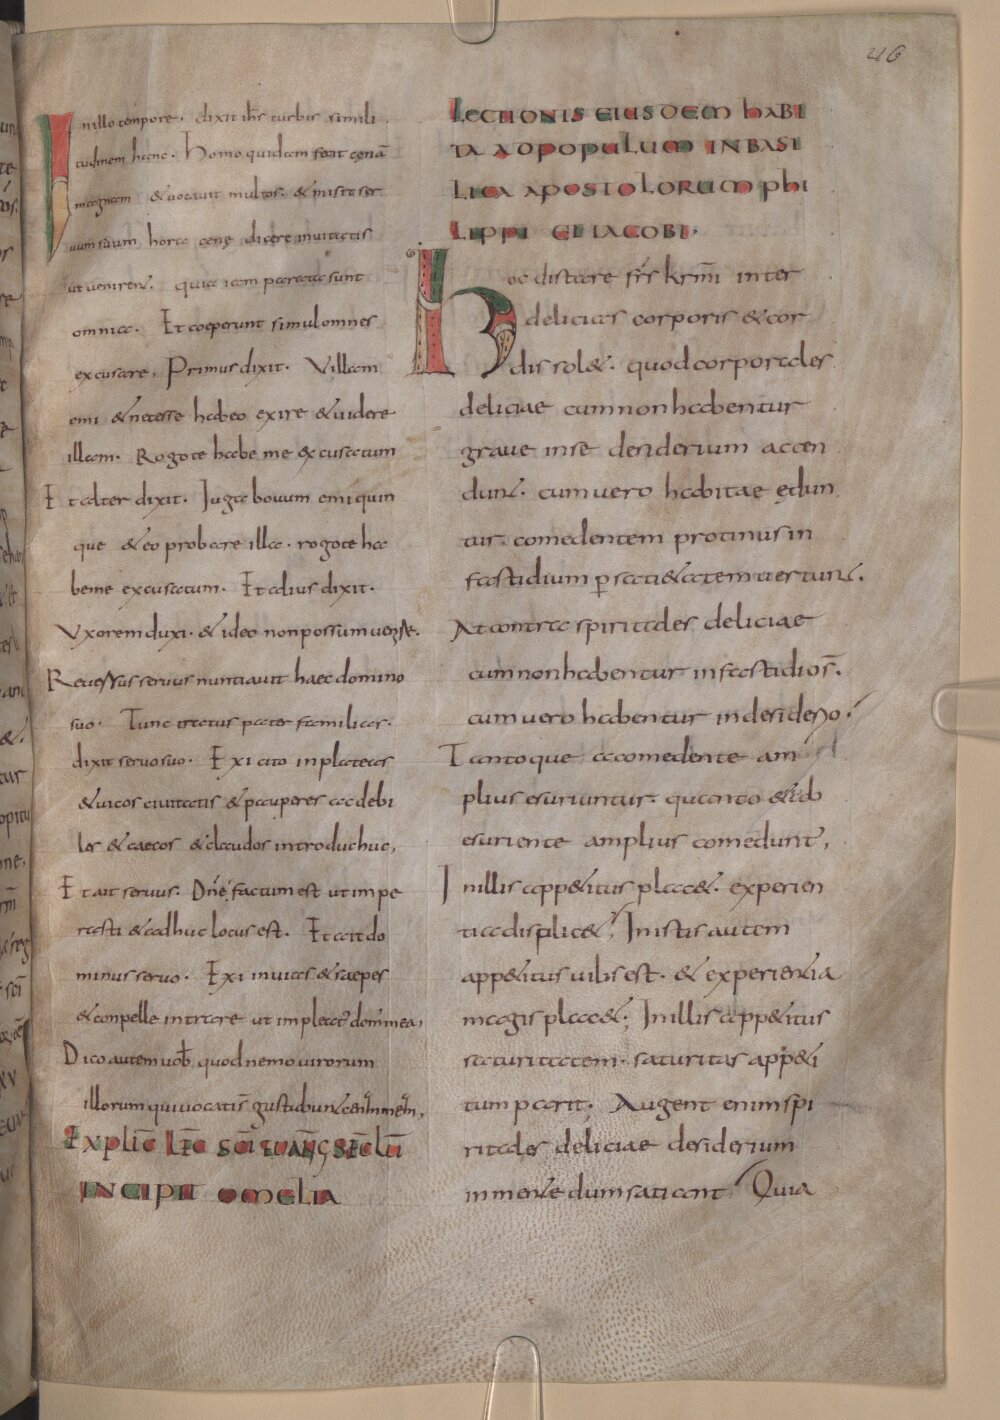 46
In illo tempore. dixit ihs turbis simili
tudinem hanc. Homo quidam fecit cenā
magnam & vocavit multos. & misit ser
uum suum hora cenę dicere invitatis
ut venirent. quia iam parata sunt
omnia. Et coeperunt simul omnes
excusare. Primus dixit. Villam
emi & necesse habeo exire & videre
illam. Rogo te habe me excusatum
Et alter dixit. Juga bouum emi quin
que & eo probare illa. rogo te ha
beme excusatum. Et alius dixit.
Vxorem duxi. & ideo non possum uenire.
Reuersus servus nuntiavit haec domino
suo. Tunc iratus pater familias.
dixit servo suo. Exi cito in plateas
& vicos civitatis & pauperes ac debi
les & caecos & claudos introduc huc,
Et ait servus. Dn̄e factum est ut impe
rasti & adhuc locus est. Et ait do
minus servo. Exi in vias & saepes
& conpelle intrare ut impleat̄ dom̄ mea,
Dico autem uob̄ quod nemo virorum
illorum qui vocati s̄ gustabunt cenam meam,
Explic̄ Lec̄ sci euang sec̄ Lū
INCIPIT OMELIA
LECTIONIS EIUSDEM HABI
TA AD POPULUM IN BASI
LICA APOSTOLORUM PHI
LIPPI ET IACOBI.
Hoc distare frs̄ krm̄i inter
delicias corporis & cor
dis sol&. quod corporales
deliciae cum non habentur
grave in se desiderium accen
dunt. cum vero habitae ędun
tur. comedentem protinus in
fastidium p̱ saci&atem uertunt.
At contra spiritales deliciae
cum non habentur in fastidio s̄.
cum vero habentur in desiderio.
Tantoque a comedente am
plius esuriuntur. quanto & ab
esuriente amplius comedunt̄,
In illis app&itus plac&. experien
tia displic&. In istis autem
app&itus uilis est. & experientia
magis plac&; In illis app&itus
saturitatem. saturitas app&i
tum parit; Augent enim spi
ritales deliciae desiderium
in mente dum satiant. Quia